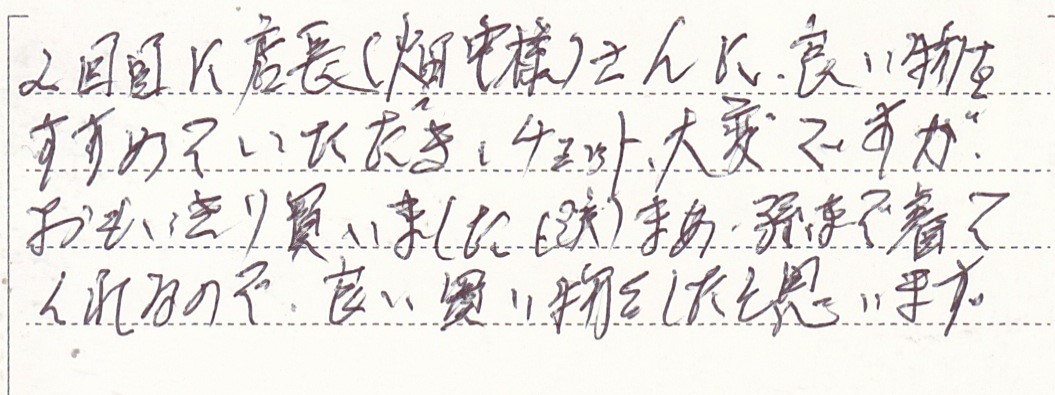 2回目に店長(畑中様)さんに、良い物を
すすめていただき、チョット、大変ですが、
おもいきり買いました(笑)まあ、孫まで着て
くれるので、良い買い物をしたと思っています。